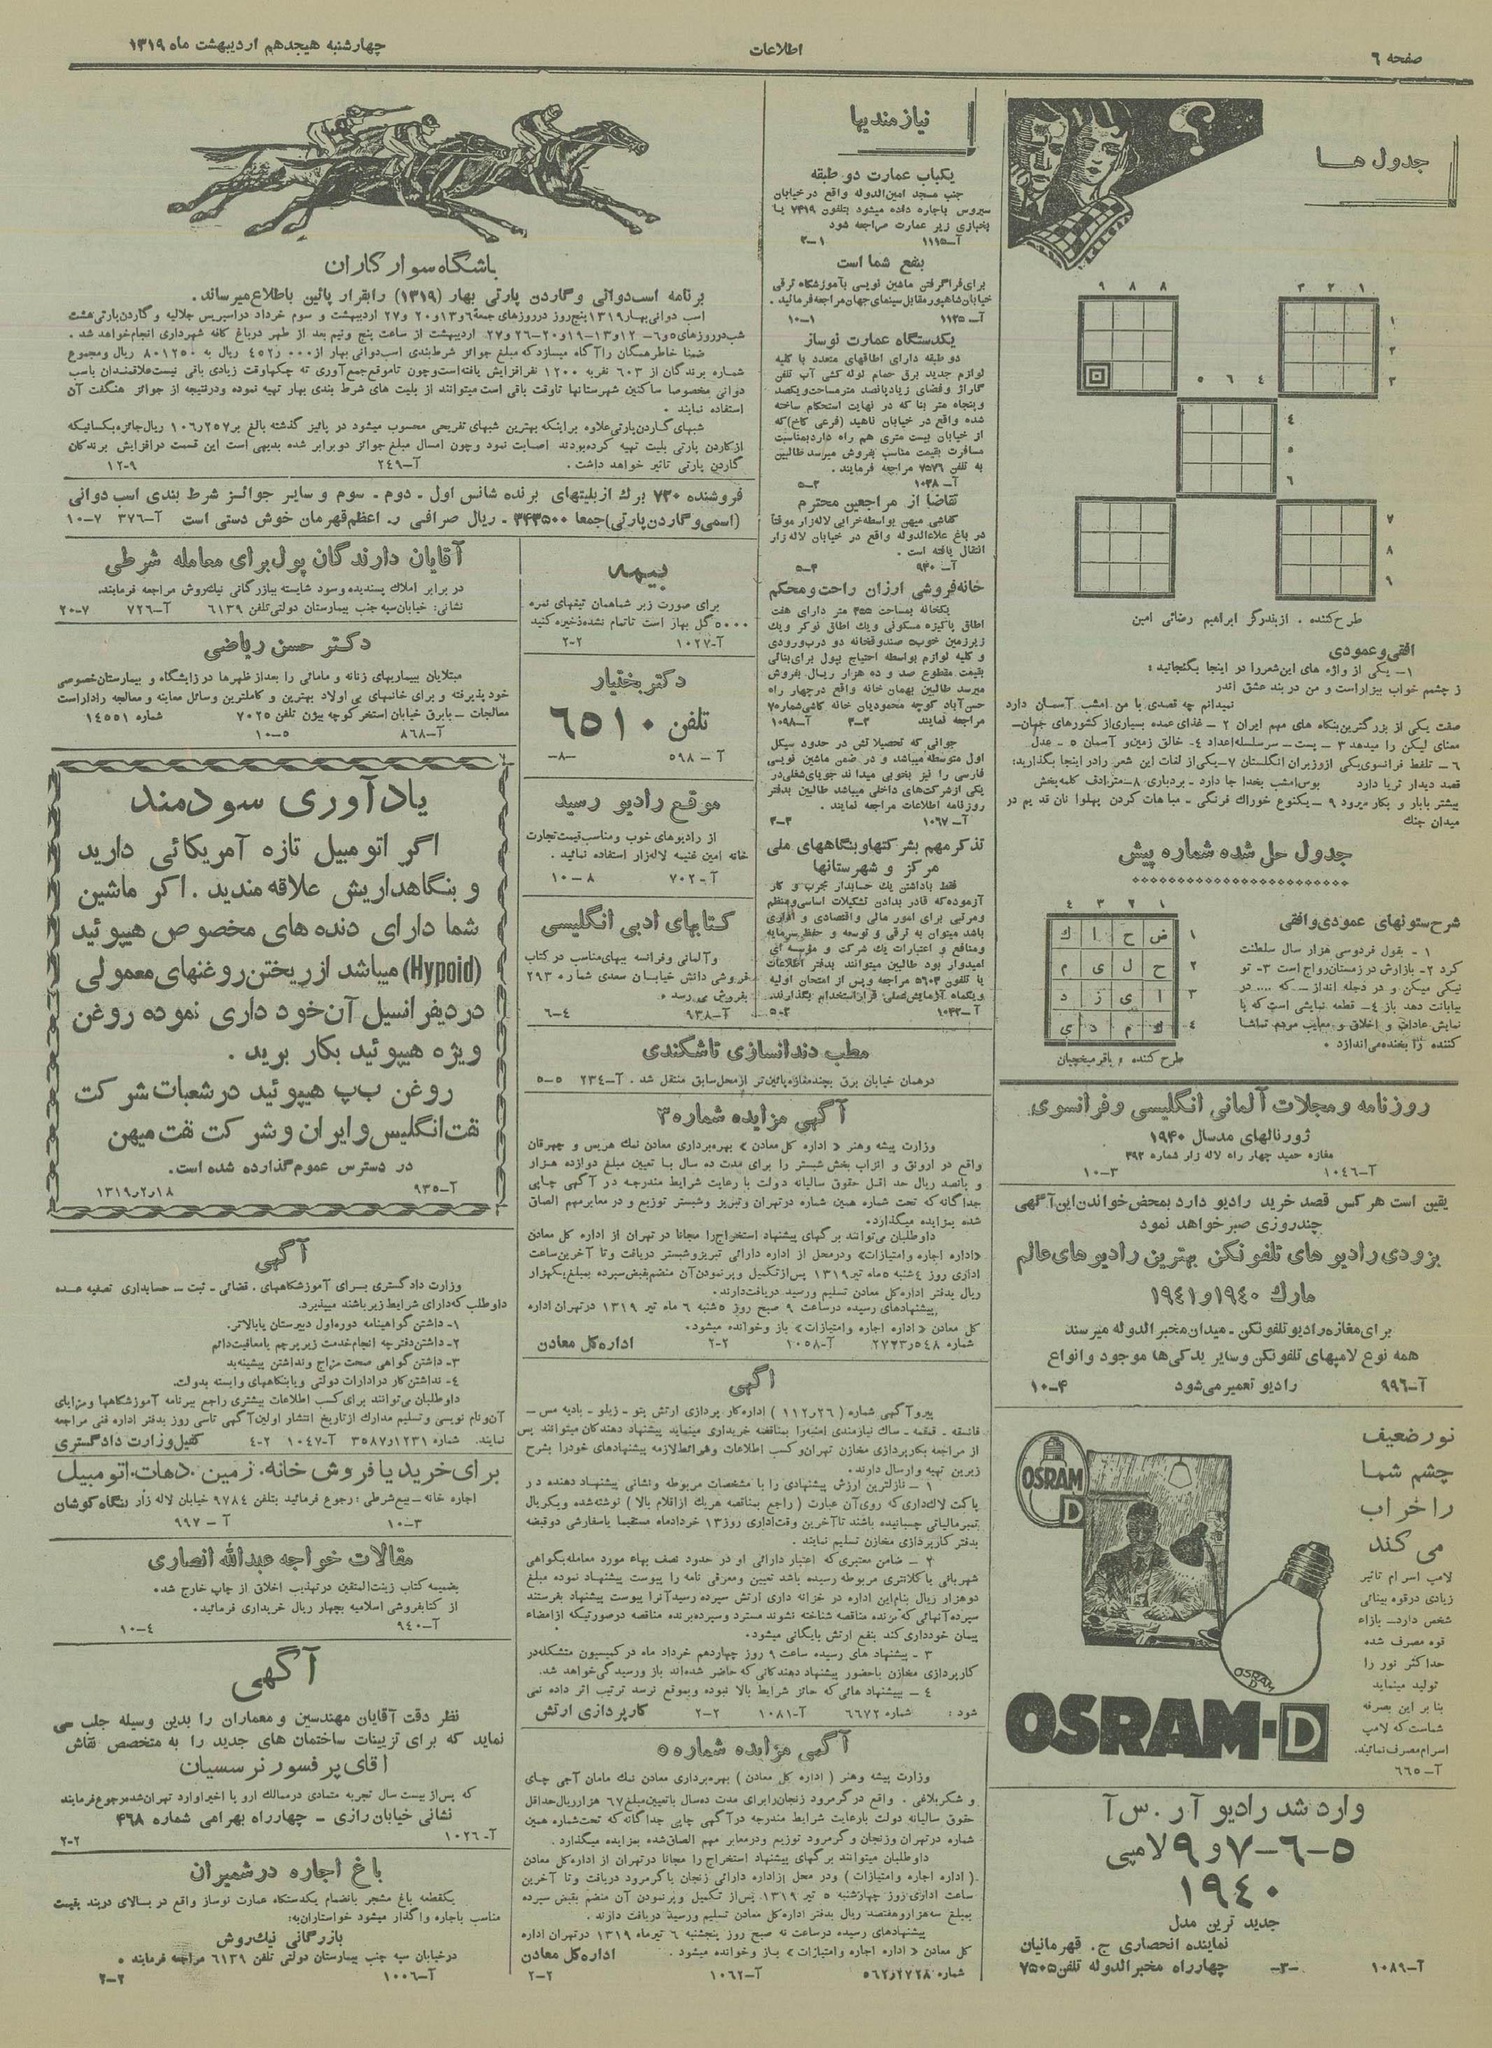 صفحه ۶
اطلاعات
چهارشنبه هیجدهم اردیبهشت ماه ۱۳۱۹
جدول ها
۹ ۸ ۸
۳ ۲ ۱
۱
۲
۳
۵ ۶ ٤
٤
۵
۶
۷
۸
۹
طرح کننده . از بندرگز ابراهیم رضائی امین
افقی و عمودی
۱ – یکی از واژه های این شعر را در اینجا بگنجانید :
ز چشم خواب بیزار است و من در بند عشق اندر
نمیدانم چه قصدی با من امشب آسمان دارد
صفت یکی از بزرگترین بنگاه های مهم ایران ۲ – غذای عمده بسیاری از کشورهای جهان–
معنای لیکن را میدهد ۳ – پست – سر سلسله اعداد ٤ – خالق زمین و آسمان ۵ – عدل
۶ – تلفظ فرانسوی یکی از وزیران انگلستان ۷ – یکی از لغات این شعر را در اینجا بگذارید:
قصد دیدار ثریا دارد بوس امشب بخدا جا دارد – بردباری ۸ – مترادف کلمه بخش
بیشتر با بار و بکار میرود ۹ – یکنوع خوراک فرنگی – مباهات کردن پهلوانان قدیم در
میدان جنگ
جدول حل شده شماره پیش
شرح ستونهای عمودی و افقی
۱ – بقول فردوسی هزار سال سلطنت
کرد ۲ – بازارش در زمستان رواج است ۳ – تو
نیکی میکن و در دجله انداز – که .... در
بیابانت دهد باز ٤ – قطعه نمایشی است که با
نمایش عادات و اخلاق و معایب مردم تماشا
کننده را بخنده می‌اندازد .
٤ ۳ ۲ ۱
ض ح ا ك ۱
ح ل ی م ۲
ا ی ز د ۳
ك م د ی ٤
طرح کننده : باقر میخچیان
روزنامه و مجلات آلمانی انگلیسی و فرانسوی
ژورنالهای مد سال ۱۹۴۰
مغازه حمید چهار راه لاله زار شماره ۴۹۲
آ–۱۰۴۶ ۳–۱۰
یقین است هر کس قصد خرید رادیو دارد بمحض خواندن این آگهی
چند روزی صبر خواهد نمود
بزودی رادیو های تلفونکن بهترین رادیو های عالم
مارك ۱۹۴۰ و ۱۹۴۱
برای مغازه رادیو تلفونکن – میدان مخبرالدوله میرسند
همه نوع لامپهای تلفونکن و سایر یدکی‌ها موجود و انواع
آ–۹۹۶ رادیو تعمیر می‌شود ۴–۱۰
نور ضعیف
چشم شما
را خراب
می کند
لامپ اسرام تاثیر
زیادی در قوه بینائی
شخص دارد – بازاء
قوه مصرف شده
حداکثر نور را
تولید مینماید
بنا بر این بصرفه
شماست که لامپ
اسرام مصرف نمائید.
آ–۶۶۵
OSRAM D
OSRAM D
OSRAM-D
وارد شد رادیو آر . س آ
۵–۶–۷ و ۹ لامپی
۱۹۴۰
جدید ترین مدل
نماینده انحصاری ج. قهرمانیان
چهارراه مخبرالدوله تلفن ۷۵۰۵
آ–۱۰۸۹ –۳–
نیازمندیها
یکباب عمارت دو طبقه
جنب مسجد امین‌الدوله واقع در خیابان
سیروس باجاره داده میشود بتلفون ۷۴۱۹ یا
بخبازی زیر عمارت مراجعه شود
آ–۱۱۱۵ ۱–۲
بنفع شما است
برای فرا گرفتن ماشین نویسی بآموزشگاه ترقی
خیابان شاهپور مقابل سینمای جهان مراجعه فرمائید .
آ–۱۱۲۵ ۱–۱۰
یکدستگاه عمارت نوساز
دو طبقه دارای اطاقهای متعدد با کلیه
لوازم جدید برق حمام لوله کشی آب تلفن
گاراژ و فضای زیاد پانصد متر مساحت و یکصد
و پنجاه متر بنا که در نهایت استحکام ساخته
شده واقع در خیابان ناهید (فرعی کاخ) که
از خیابان بیست متری هم راه دارد بمناسبت
مسافرت بقیمت مناسب بفروش میرسد طالبین
به تلفن ۷۵۷۶ مراجعه فرمایند .
آ–۱۰۳۸ ۲–۵
تقاضا از مراجعین محترم
کفاشی میهن بواسطه خرابی لاله‌زار موقتاً
در باغ علاءالدوله واقع در خیابان لاله زار
انتقال یافته است .
آ–۹۴۰ ۴–۵
خانه فروشی ارزان راحت و محکم
یکخانه بمساحت ۴۵۵ متر دارای هفت
اطاق پاکیزه مسکونی و یک اطاق نوکر و یک
زیرزمین خوب صندوقخانه دو درب ورودی
و کلیه لوازم بواسطه احتیاج بپول برای بنائی
بقیمت مقطوع صد و ده هزار ریال بفروش
میرسد طالبین بهمان خانه واقع در چهار راه
حسن‌آباد کوچه محمودیان خانه کاشی شماره ۷
مراجعه نمایند ۲–۳ آ–۱۰۹۸
جوانی که تحصیلاتش در حدود سیکل
اول متوسطه میباشد و در ضمن ماشین نویسی
فارسی را نیز بخوبی میداند جویای شغلی در
یکی از شرکت‌های داخلی میباشد طالبین بدفتر
روزنامه اطلاعات مراجعه نمایند .
آ–۱۰۶۷ ۲–۳
تذکر مهم بشرکتها و بنگاههای ملی
مرکز و شهرستانها
فقط با داشتن یک حسابدار مجرب و کار
آزموده که قادر بدادن تشکیلات اساسی و منظم
و مرتبی برای امور مالی و اقتصادی و اداری
باشد میتوان به ترقی و توسعه و حفظ سرمایه
و منافع و اعتبارات یک شرکت و مؤسسه ای
امیدوار بود طالبین میتوانند بدفتر اطلاعات
یا تلفون ۵۶۰۳ مراجعه و پس از امتحان اولیه
و یکماه آزمایش عملی قرار استخدام بگذارند.
آ–۱۰۴۲ ۲–۵
باشگاه سوار کاران
برنامه اسب دوانی و گاردن پارتی بهار (۱۳۱۹) را بقرار پائین باطلاع میرساند .
اسب دوانی بهار ۱۳۱۹ پنج روز در روزهای جمعه ۶ و ۱۳ و ۲۰ و ۲۷ اردیبهشت و سوم خرداد در اسپریس جلالیه و گاردن پارتی هشت
شب در روزهای ۵ و ۶ – ۱۲ و ۱۳ – ۱۹ و ۲۰ – ۲۶ و ۲۷ اردیبهشت از ساعت پنج و نیم بعد از ظهر در باغ کافه شهرداری انجام خواهد شد .
ضمنا خاطر همگان را آگاه میسازد که مبلغ جوائز شرط بندی اسب‌دوانی بهار از ۴۵۲٫۰۰۰ ریال به ۸۰۱۲۵۰ ریال و مجموع
شماره برندگان از ۶۰۳ نفر به ۱۲۰۰ نفر افزایش یافته است و چون تا موقع جمع آوری ته چکها وقت زیادی باقی نیست علاقمندان باسب
دوانی مخصوصا ساکنین شهرستانها تا وقت باقی است میتوانند از بلیت های شرط بندی بهار تهیه نموده و در نتیجه از جوائز هنگفت آن
استفاده نمایند .
شبهای گاردن پارتی علاوه بر اینکه بهترین شبهای تفریحی محسوب میشود در پائیز گذشته بالغ بر ۱۰۶٫۲۵۷ ریال جائزه بکسانیکه
از گاردن پارتی بلیت تهیه کرده بودند اصابت نمود و چون امسال مبلغ جوائز دو برابر شده بدیهی است این قسمت در افزایش برندگان
گاردن پارتی تاثیر خواهد داشت . آ–۲۴۹ ۹–۱۲
فروشنده ۷۲۰ برگ از بلیتهای برنده شانس اول . دوم . سوم و سایر جوائز شرط بندی اسب دوانی
(اسمی و گاردن پارتی) جمعا ۳۴۳۵۰۰ . ریال صرافی ر. اعظم قهرمان خوش دستی است آ–۳۷۶ ۷–۱۰
بیمه
برای صورت زبر شما همان تیغهای نمره
۵۰۰۰ گل بهار است تا تمام نشده ذخیره کنید
آ–۱۰۲۷ ۲–۲
دکتر بختیار
تلفن ۶۵۱۰
آ–۵۹۸ –۸–
موقع رادیو رسید
از رادیوهای خوب و مناسب قیمت تجارت
خانه امین غنیمه لاله‌زار استفاده نمائید .
آ–۷۰۲ ۸–۱۰
کتابهای ادبی انگلیسی
و آلمانی و فرانسه ببهای مناسب در کتاب
فروشی دانش خیابان سعدی شماره ۲۹۳
بفروش میرسد .
آ–۹۳۸ ٤–۶
مطب دندانسازی تاشکندی
در همان خیابان برق بچند مغازه پائین تر از محل سابق منتقل شد . آ–۲۳٤ ۵–۵
آگهی مزایده شماره ۳
وزارت پیشه و هنر « اداره کل معادن » بهره برداری معادن نمک هریس و چهرقان
واقع در ارونق و انزاب بخش شبستر را برای مدت ده سال با تعیین مبلغ دوازده هزار
و پانصد ریال حد اقل حقوق سالیانه دولت با رعایت شرایط مندرجه در آگهی چاپی
جداگانه که تحت شماره همین شماره در تهران و تبریز و شبستر توزیع و در معابر مهم الصاق
شده بمزایده میگذارد.
داوطلبان می‌توانند برگهای پیشنهاد استخراج را مجانا در تهران از اداره کل معادن
«اداره اجاره و امتیازات» و در محل از اداره دارائی تبریز و شبستر دریافت و تا آخرین ساعت
اداری روز ٤ شنبه ۵ ماه تیر ۱۳۱۹ پس از تکمیل و پر نمودن آن منضم بقبض سپرده بمبلغ یکهزار
ریال بدفتر اداره کل معادن تسلیم و رسید دریافت دارند .
پیشنهادهای رسیده در ساعت ۹ صبح روز ۵ شنبه ۶ ماه تیر ۱۳۱۹ در تهران اداره
کل معادن « اداره اجاره و امتیازات » باز و خوانده میشود .
شماره ۲۷۴۳٫۵۴۸ آ–۱۰۵۸ ۲–۲ اداره کل معادن
آگهی
پیرو آگهی شماره (۱۱۲٫۲۶) اداره کارپردازی ارتش پتو – زیلو – بادیه مس –
فانسقه – قمقمه – ساك نیازمندی امنیه را بمناقصه خریداری مینماید پیشنهاد دهندگان میتوانند پس
از مراجعه بکارپردازی مخازن تهران و کسب اطلاعات و شرائط لازمه پیشنهادهای خود را بشرح
زیرین تهیه و ارسال دارند .
۱ – نازلترین ارزش پیشنهادی را با مشخصات مربوطه و نشانی پیشنهاد دهنده در
پاکت لاك داری که روی آن عبارت ( راجع بمناقصه هریك از اقلام بالا ) نوشته شده و یکریال
تمبر مالیاتی چسبانیده باشند تا آخرین وقت اداری روز ۱۳ خرداد ماه مستقیما یا سفارشی دو قبضه
بدفتر کارپردازی مخازن تسلیم نمایند .
۲ – ضامن معتبری که اعتبار دارائی او در حدود نصف بهاء مورد معامله بگواهی
شهربانی یا کلانتری مربوطه رسیده باشد تعیین و معرفی نامه را پیوست پیشنهاد نموده مبلغ
دو هزار ریال بنام این اداره در خزانه داری ارتش سپرده رسید آنرا پیوست پیشنهاد بفرستند
سپرده آنهائی که برنده مناقصه شناخته نشوند مسترد و سپرده برنده مناقصه در صورتیکه از امضاء
پیمان خودداری کند بنفع ارتش بایگانی میشود .
۳ – پیشنهاد های رسیده ساعت ۹ روز چهاردهم خرداد ماه در کمیسیون متشکله در
کارپردازی مخازن با حضور پیشنهاد دهندگانی که حاضر شده‌اند باز و رسیدگی خواهد شد.
٤ – پیشنهاد هائی که حائز شرایط بالا نبوده و بموقع نرسد ترتیب اثر داده نمی
شود : شماره ۶۶۷۲ آ–۱۰۸۱ ۲–۲ کارپردازی ارتش
آگهی مزایده شماره ۵
وزارت پیشه و هنر ( اداره کل معادن ) بهره برداری معادن نمک مامان آجی چای
و شکربلاغی . واقع در گرمرود زنجان را برای مدت ده سال با تعیین مبلغ ۶۷ هزار ریال حداقل
حقوق سالیانه دولت با رعایت شرایط مندرجه در آگهی چاپی جداگانه که تحت شماره همین
شماره در تهران و زنجان و گرمرود توزیع و در معابر مهم الصاق شده بمزایده میگذارد .
داوطلبان میتوانند برگهای پیشنهاد استخراج را مجانا در تهران از اداره کل معادن
( اداره اجاره و امتیازات ) و در محل از اداره دارائی زنجان یا گرمرود دریافت و تا آخرین
ساعت اداری روز چهارشنبه ۵ تیر ۱۳۱۹ پس از تکمیل و پر نمودن آن منضم بقبض سپرده
بمبلغ سه هزار و هفتصد ریال بدفتر اداره کل معادن تسلیم و رسید دریافت دارند .
پیشنهادهای رسیده در ساعت نه صبح روز پنجشنبه ۶ تیرماه ۱۳۱۹ در تهران اداره
کل معادن « اداره اجاره و امتیازات » باز و خوانده میشود . اداره کل معادن
شماره ۵۶۲٫۲۷۲۸ آ–۱۰۶۲ ۲–۲
آقایان دارندگان پول برای معامله شرطی
در برابر املاك پسندیده و سود شایسته ببازرگانی نیك روش مراجعه فرمایند.
نشانی: خیابان سپه جنب بیمارستان دولتی تلفن ۶۱۳۹ آ–۷۲۶ ۷–۲۰
دکتر حسن ریاضی
مبتلایان ببیماریهای زنانه و مامائی را بعد از ظهرها در زایشگاه و بیمارستان خصوصی
خود پذیرفته و برای خانمهای بی اولاد بهترین و کاملترین وسائل معاینه و معالجه را دارا است
معالجات – با برق خیابان استخر کوچه بیژن تلفن ۷۰۲۵ شماره ۱۴۵۵۱
آ–۸۶۸ ۵–۱۰
یادآوری سودمند
اگر اتومبیل تازه آمریکائی دارید
و بنگاهداریش علاقه مندید . اگر ماشین
شما دارای دنده های مخصوص هیپوئید
(Hypoid) میباشد از ریختن روغنهای معمولی
در دیفرانسیل آن خود داری نموده روغن
ویژه هیپوئید بکار برید .
روغن ب‌پ هیپوئید در شعبات شرکت
نفت انگلیس و ایران و شرکت نفت میهن
در دسترس عموم گذارده شده است .
آ–۹۳۵ ۱۳۱۹٫۲٫۱۸
آگهی
وزارت دادگستری برای آموزشگاههای . قضائی . ثبت – حسابداری تصفیه عده
داوطلب که دارای شرایط زیر باشند میپذیرد.
۱– داشتن گواهینامه دوره اول دبیرستان یا بالاتر.
۲– داشتن دفترچه انجام خدمت زیر پرچم یا معافیت دائم
۳– داشتن گواهی صحت مزاج و نداشتن پیشینه بد
٤– نداشتن کار در ادارات دولتی و یا بنگاههای وابسته بدولت.
داوطلبان می‌توانند برای کسب اطلاعات بیشتری راجع ببرنامه آموزشگاهها و مزایای
آن و نام نویسی و تسلیم مدارك از تاریخ انتشار اولین آگهی تا سی روز بدفتر اداره فنی مراجعه
نمایند. شماره ۳۵۸۷٫۱۲۳۱ آ–۱۰۴۷ ۲–٤ کفیل وزارت دادگستری
برای خرید یا فروش خانه . زمین . دهات . اتومبیل
اجاره خانه – بیع شرطی : رجوع فرمائید بتلفن ۹۷۸۴ خیابان لاله زار بنگاه کوشان
آ–۹۹۷ ۳–۱۰
مقالات خواجه عبدالله انصاری
بضمیمه کتاب زینت المتقین در تهذیب اخلاق از چاپ خارج شده
از کتابفروشی اسلامیه بچهار ریال خریداری فرمائید.
آ–۹۴۰ ٤–۱۰
آگهی
نظر دقت آقایان مهندسین و معماران را بدین وسیله جلب می
نماید که برای تزیینات ساختمان های جدید را به متخصص نقاش
آقای پرفسور نرسسیان
که پس از بیست سال تجربه متمادی در ممالك اروپا اخیرا وارد تهران شده رجوع فرمایند
نشانی خیابان رازی – چهارراه بهرامی شماره ۴۶۸
آ–۱۰۲۶ ۲–۲
باغ اجاره در شمیران
یکقطعه باغ مشجر بانضمام یکدستگاه عمارت نوساز واقع در بالای دربند بقیمت
مناسب باجاره واگذار میشود خواستاران به:
بازرگانی نیك روش
در خیابان سپه جنب بیمارستان دولتی تلفن ۶۱۳۹ مراجعه فرمایند .
آ–۱۰۰۶ ۲–۲